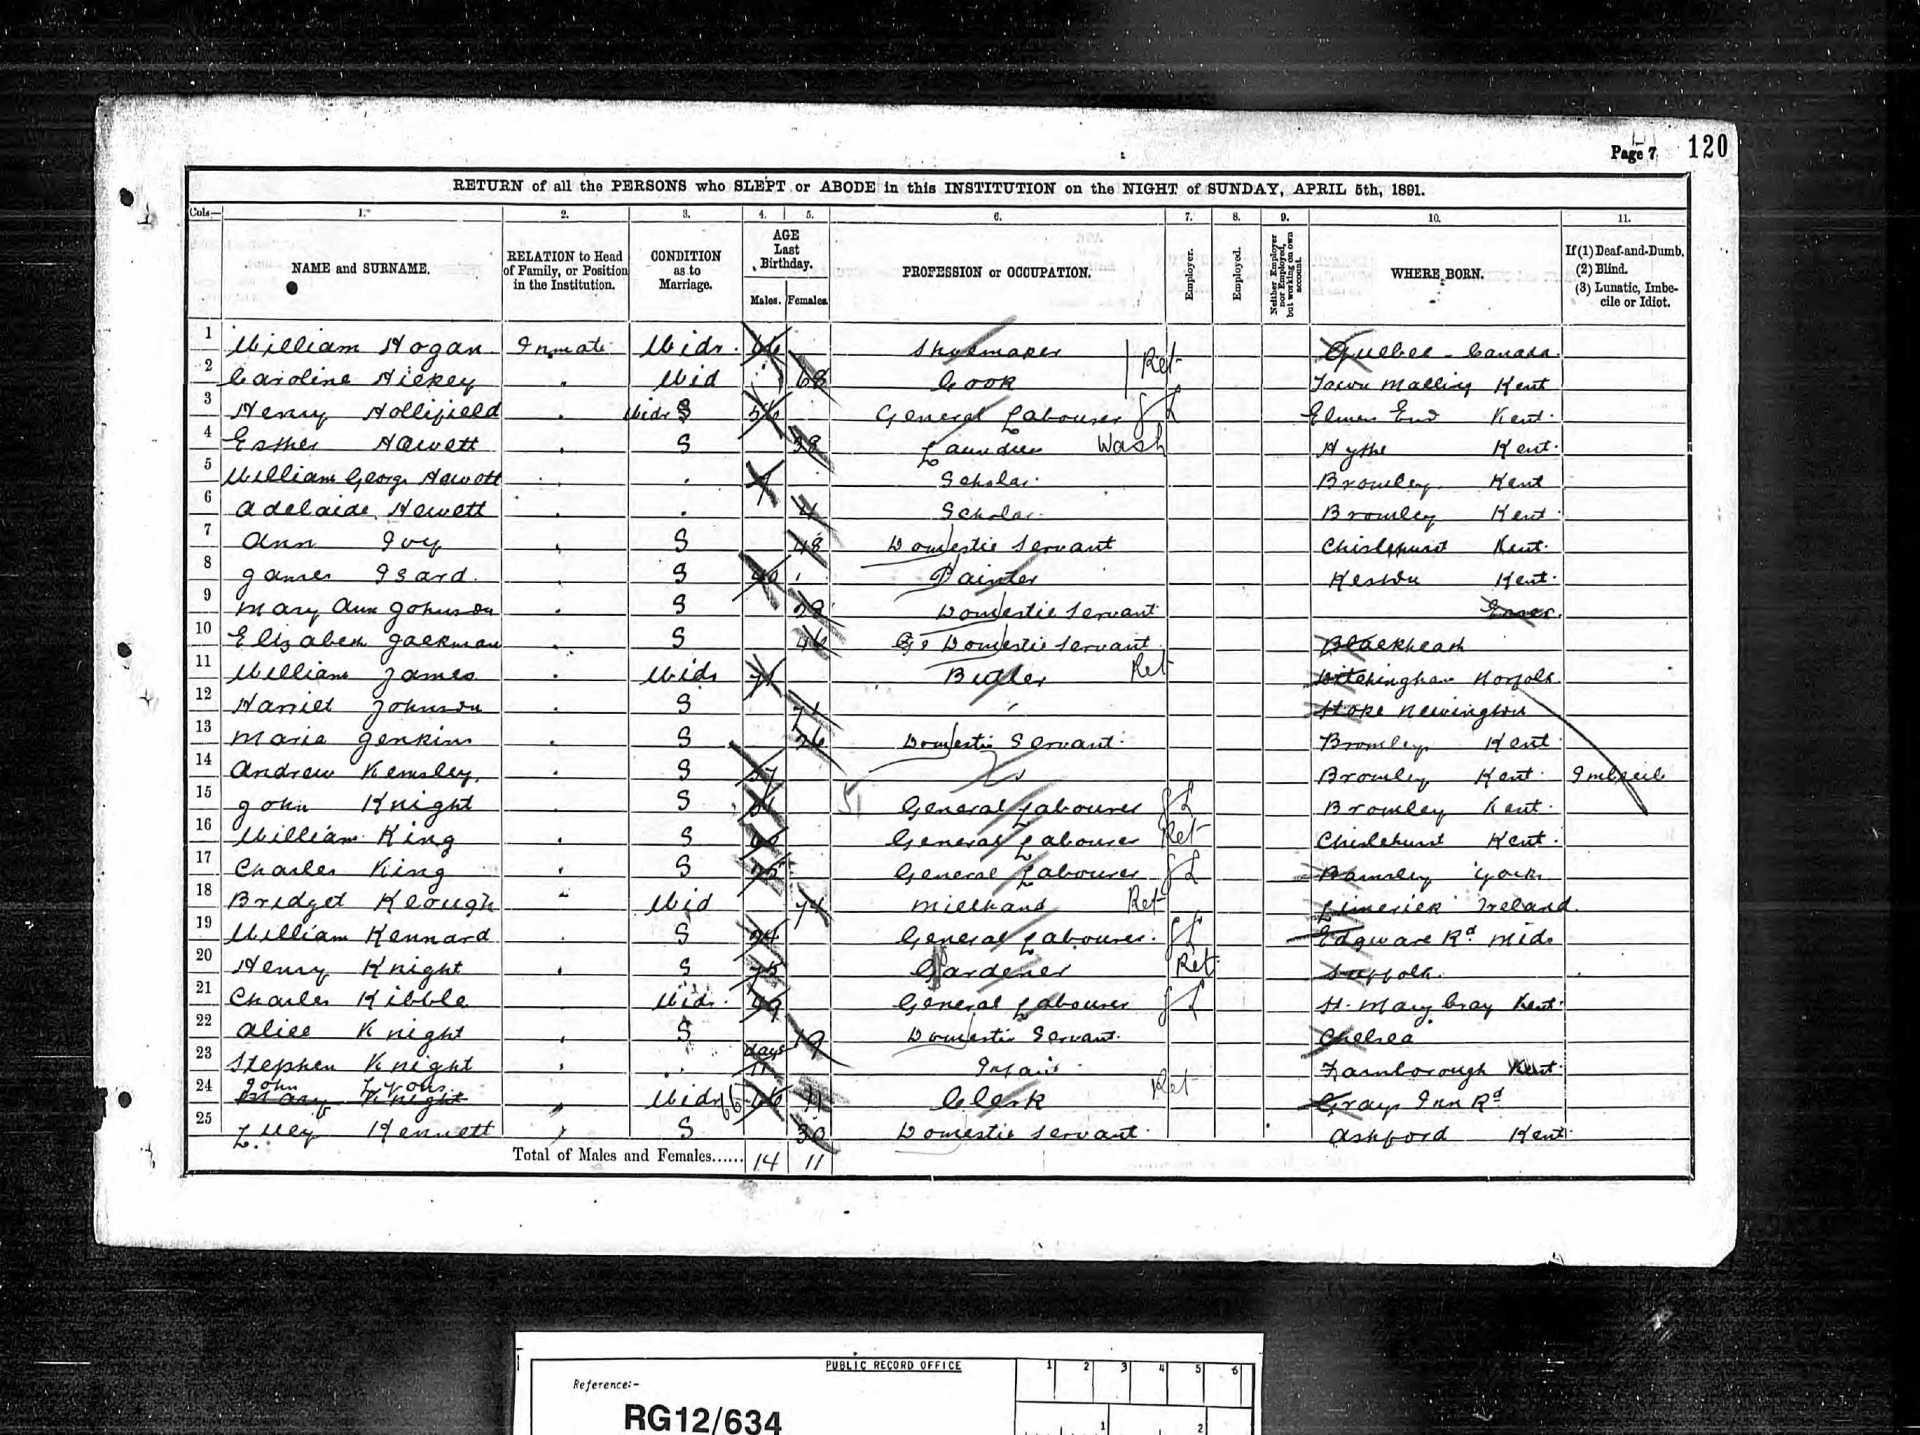 Page 7 120
RETURN of all the PERSONS who SLEPT or ABODE in this INSTITUTION on the NIGHT of SUNDAY, APRIL 5th, 1891.
Cols— 1. 2. 3. 4. 5. 6. 7. 8. 9. 10. 11.
NAME and SURNAME. RELATION to Head of Family, or Position in the Institution. CONDITION as to Marriage. AGE Last Birthday. Males. Females. PROFESSION or OCCUPATION. Employer. Employed. Neither Employer nor Employed, but working on own account. WHERE BORN. If (1) Deaf-and-Dumb. (2) Blind. (3) Lunatic, Imbecile or Idiot.
1 William Hogan Inmate Widr. 66 Shoemaker Quebec - Canada
2 Caroline Hickey " Wid 68 Cook Ret Town Malling Kent
3 Henry Hollifield " Widr S 56 General Labourer GL Elmers End Kent
4 Esther Hewett " S 38 Laundress Wash Hythe Kent
5 William George Hewett " Scholar Bromley Kent
6 Adelaide Hewett " 4 Scholar Bromley Kent
7 Ann Ivy " S 48 Domestic Servant Chislehurst Kent
8 James Isard " S 40 Painter Keston Kent
9 Mary Ann Johnson " S Domestic Servant Essex
10 Elizabeth Jackman " S 46 Domestic Servant Blackheath
11 William James " Widr 71 Butler Ret Witchingham Norfolk
12 Harriet Johnson " S 71 Stoke Newington
13 Maria Jenkins " S 26 Domestic Servant Bromley Kent
14 Andrew Kemsley " S Bromley Kent Imbecile
15 John Knight " S 51 General Labourer GL Bromley Kent
16 William King " S General Labourer Ret Chislehurst Kent
17 Charles King " S General Labourer GL Barnsley York
18 Bridget Keough " Wid 74 Millhand Ret Limerick Ireland
19 William Kennard " S General Labourer GL Edgware Rd Midx
20 Henry Knight " S 75 Gardener Ret Suffolk
21 Charles Kibble Widr. General Labourer GL St. Mary Cray Kent
22 Alice Knight " S 19 Domestic Servant Chelsea
23 Stephen Knight " days 11 Infant Farnborough Kent
24 John Lyons Mary Knight " Widr 66 66 Clerk Ret Grays Inn Rd
25 Lucy Kennett " S 30 Domestic Servant Ashford Kent
Total of Males and Females...... 14 11
PUBLIC RECORD OFFICE 1 2 3 4 5 6
Reference:-
RG12/634 1 2